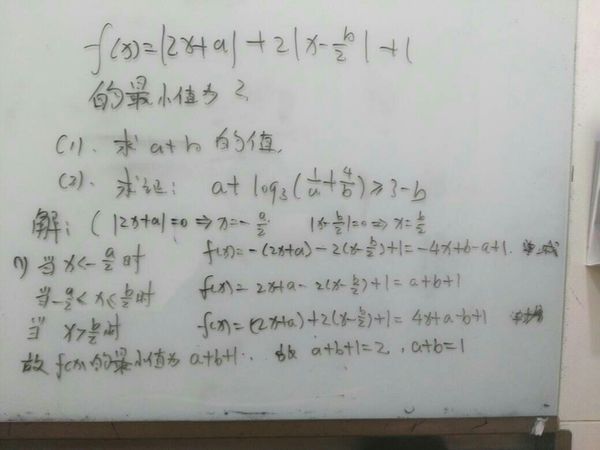 f(x)=|2x+a|+2|x-b/2|+1
的最小值为2
(1). 求a+b的值.
(2). 求证: a+log₃(1/a+4/b)≥3-b
解: (|2x+a|=0⇒x=-a/2 |x-b/2|=0⇒x=b/2
1) 当x<-a/2时 f(x)=-(2x+a)-2(x-b/2)+1=-4x+b-a+1. 单减
当-a/2<x≤b/2时 f(x)=2x+a-2(x-b/2)+1=a+b+1
当 x>b/2时 f(x)=(2x+a)+2(x-b/2)+1=4x+a-b+1 单增
故f(x)的最小值为a+b+1. 故 a+b+1=2, a+b=1